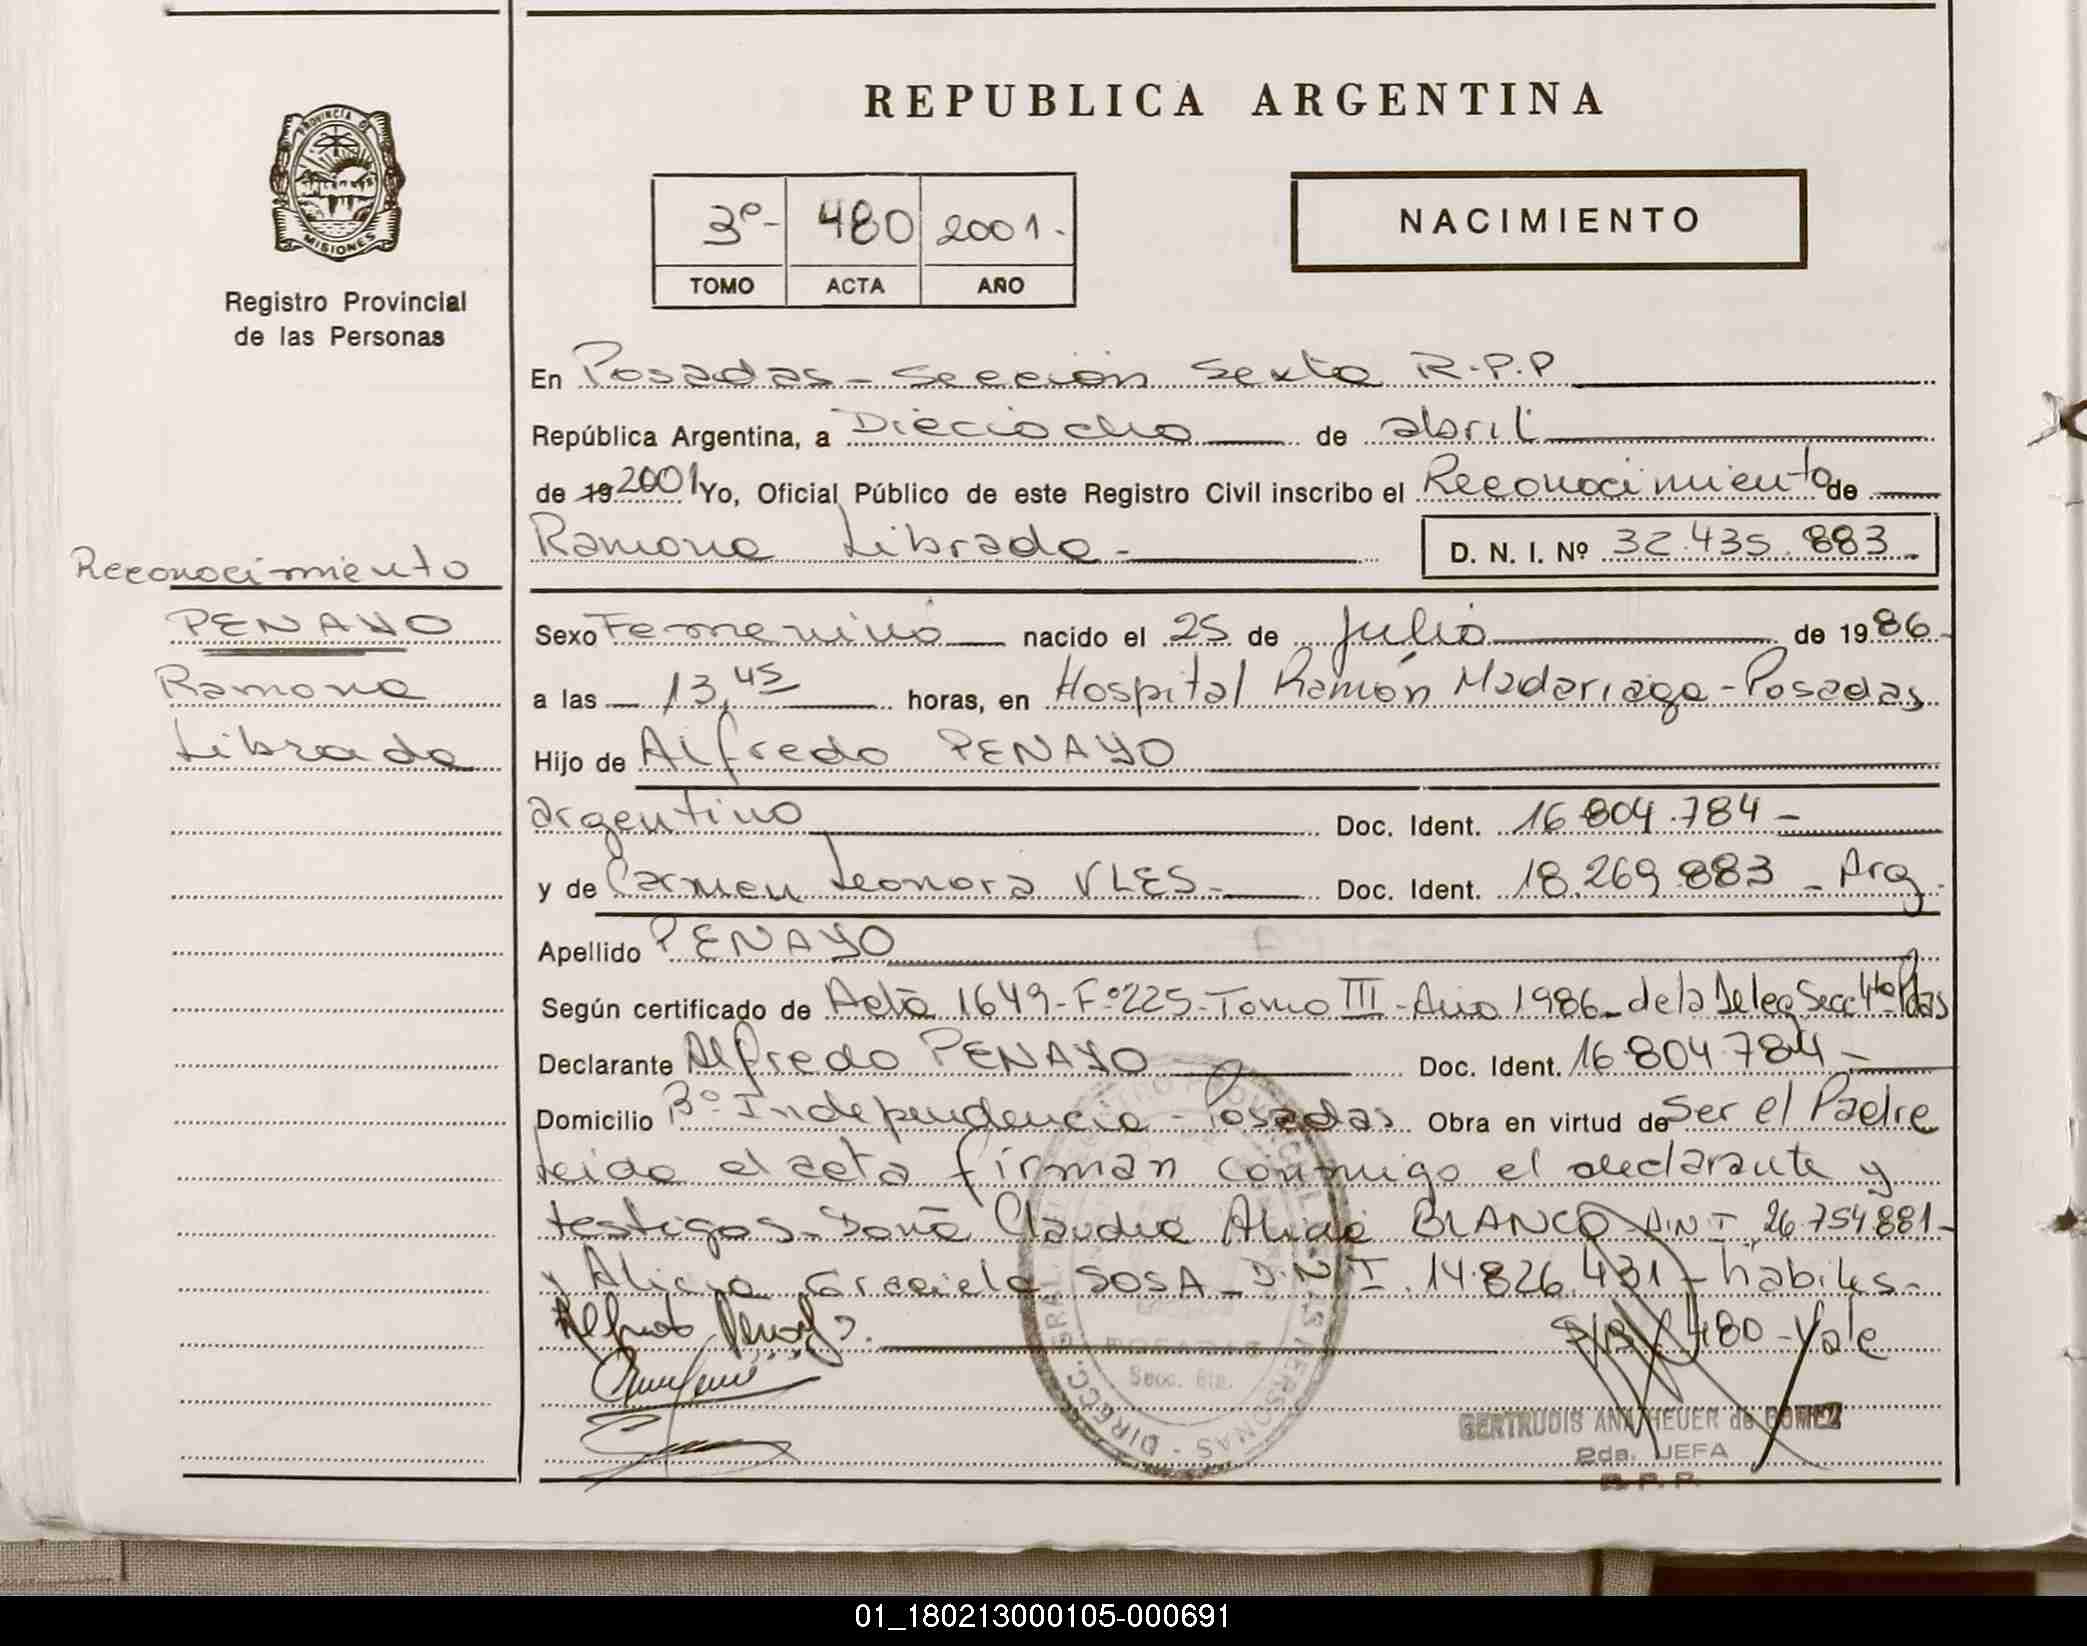 REPUBLICA ARGENTINA
PROVINCIA DE
MISIONES
Registro Provincial
de las Personas
3º- 480 2001.-
TOMO ACTA AÑO
NACIMIENTO
En Posadas - Sección Sexta R.P.P
República Argentina, a Dieciocho de abril
de 19 2001 Yo, Oficial Público de este Registro Civil inscribo el Reconocimiento de
Ramona Librada.-
D. N. I. Nº 32.435.883.
Reconocimiento
PENAYO
Ramona
Librada
Sexo Femenino nacido el 25 de Julio de 1986.-
a las 13,45 horas, en Hospital Ramón Madariaga - Posadas
Hijo de Alfredo PENAYO
argentino Doc. Ident. 16.804.784 -
y de Carmen Leonora VLES.- Doc. Ident. 18.269.883 - Arg.
Apellido PENAYO
Según certificado de Acta 1649 - Fº 225 - Tomo III - Año 1986 - de la Deleg Secc 4ta Pdas
Declarante Alfredo PENAYO Doc. Ident. 16.804.784 -
Domicilio Bº Independencia - Posadas Obra en virtud de Ser el Padre
Leida el acta firman conmigo el declarante y
testigos - Doña Claudia Alicia BLANCO D.N.I. 26.754.881 -
y Alicia Graciela SOSA - D.N.I. 14.826.431 - habiles -
Alfredo Penayo.
480 - Vale
POSADAS
Secc. 6ta.
GERTRUDIS ANA HEUER de GOMEZ
2da. JEFA
R. P. P.
01_180213000105-000691